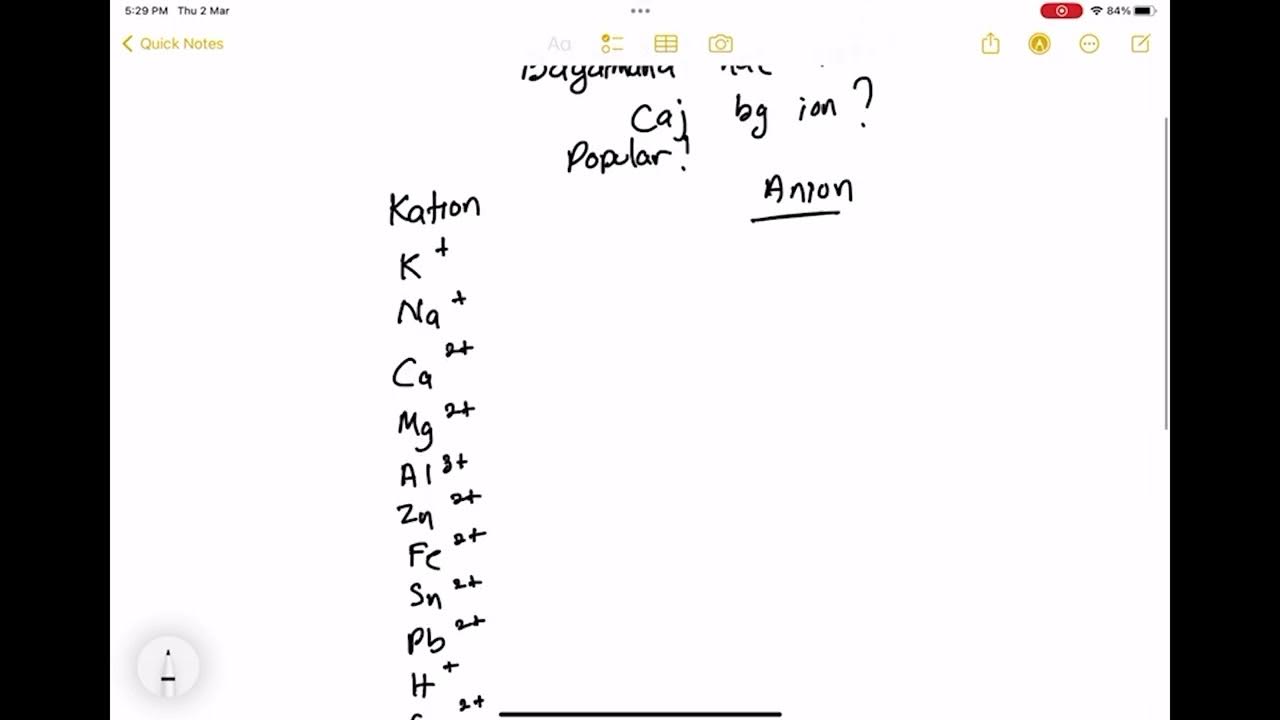 5:29 PM Thu 2 Mar
84%
Quick Notes
Aa
Bagaimana
Caj bg ion?
Popular?
Anion
Kation
K⁺
Na⁺
Ca²⁺
Mg²⁺
Al³⁺
Zn²⁺
Fe²⁺
Sn²⁺
Pb²⁺
H⁺
2+